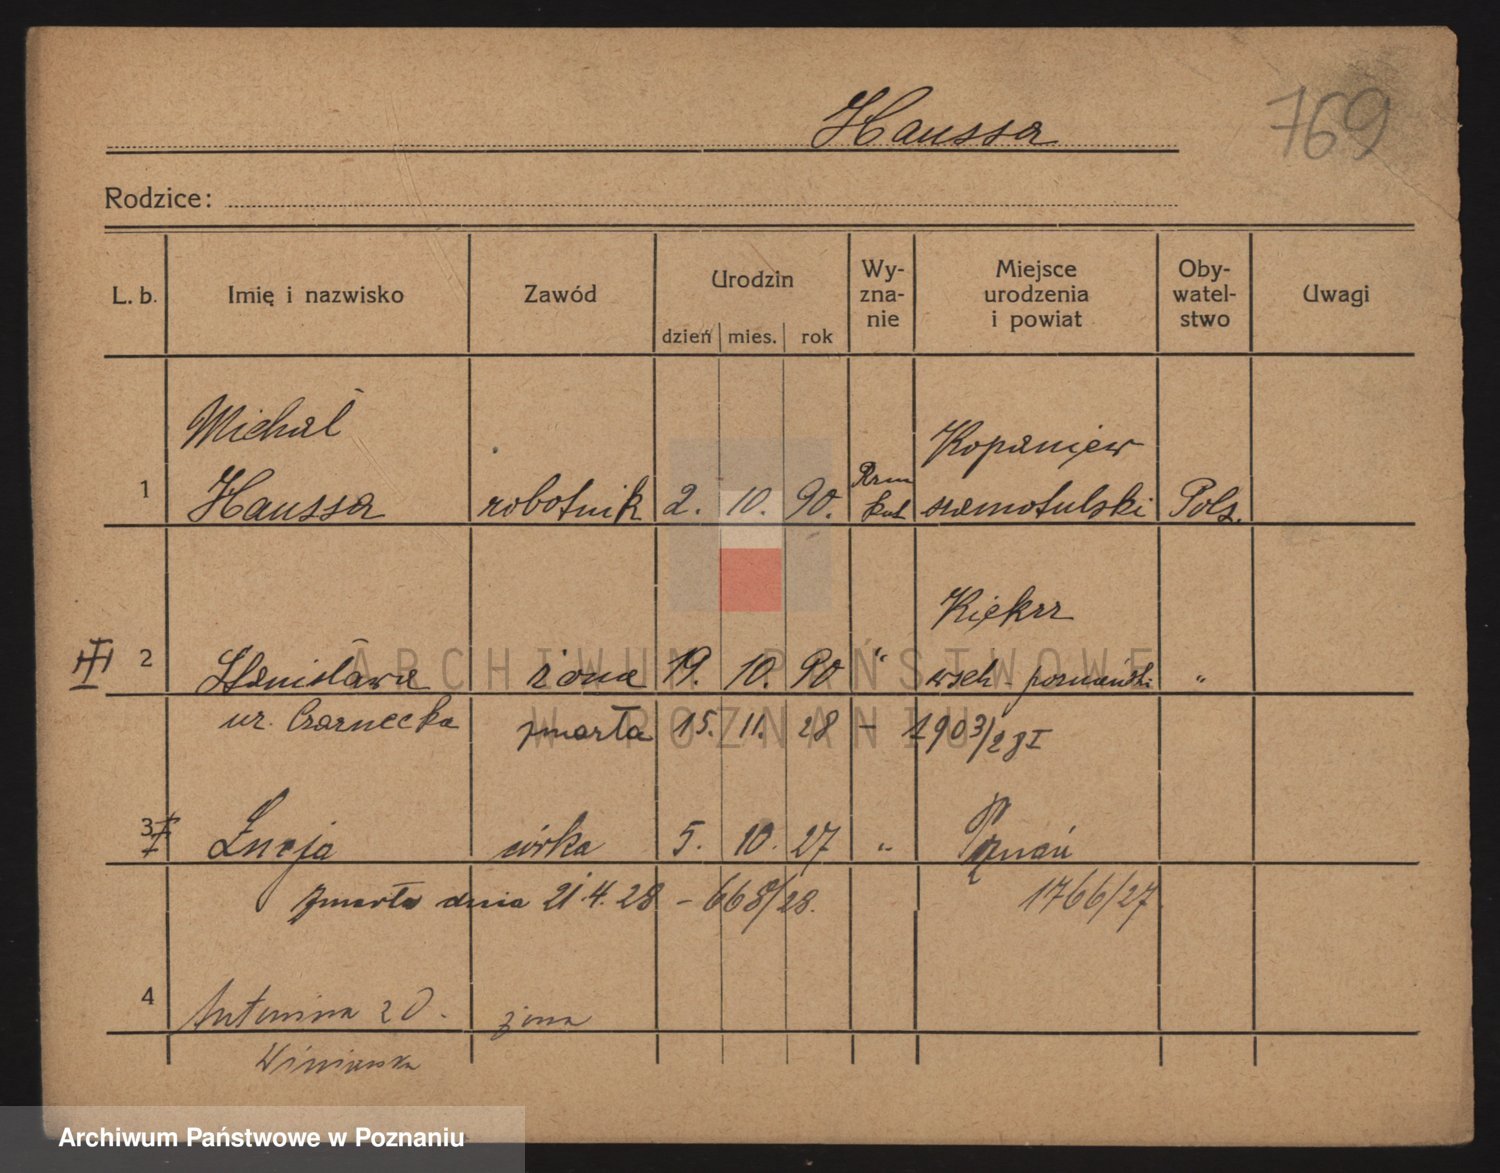 Haussa
769
Rodzice:
L. b. Imię i nazwisko Zawód Urodzin dzień mies. rok Wy-zna-nie Miejsce urodzenia i powiat Oby-watel-stwo Uwagi
Michał Kopaniew
1 Haussa robotnik 2. 10. 90. Rzm kat szamotulski Pols.
Kiekrz
2 Stanisława żona 19. 10. 90 " wsch. poznański "
ur. Czarnecka zmarła 15. 11. 28 – 1903/28 I
3 Łucja córka 5. 10. 27 " Poznań
zmarła dnia 21.4.28 – 668/28. 1766/27
4 Antonina 2 D. żona
Winiarska
ARCHIWUM PAŃSTWOWE
W POZNANIU
Archiwum Państwowe w Poznaniu